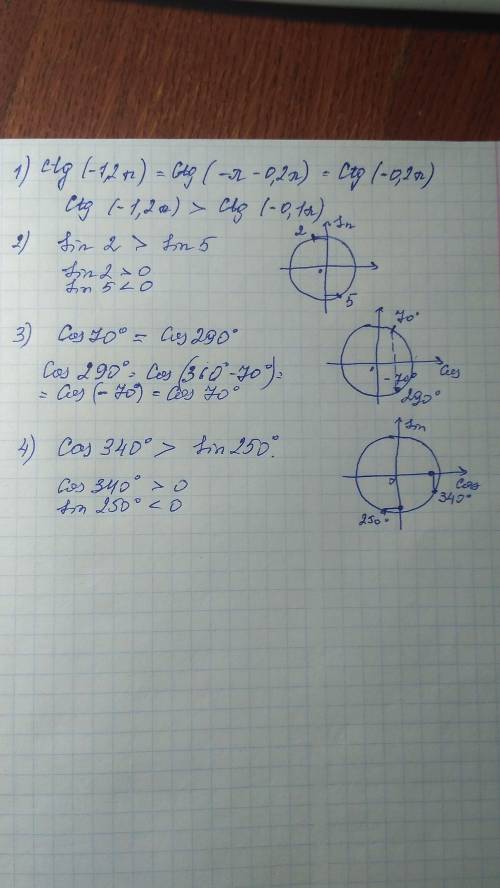 1) Ctg (-1,2π) = Ctg (-π - 0,2π) = Ctg (-0,2π)
Ctg (-1,2π) > Ctg (-0,1π)
2) Sin 2 > Sin 5
Sin 2 > 0
Sin 5 < 0
2
Sin
0
5
3) Cos 70° = Cos 290°
Cos 290° = Cos (360° - 70°) =
= Cos (-70°) = Cos 70°
70°
0
Cos
-70°
290°
4) Cos 340° > Sin 250°.
Cos 340° > 0
Sin 250° < 0
Sin
0
Cos
340°
250°